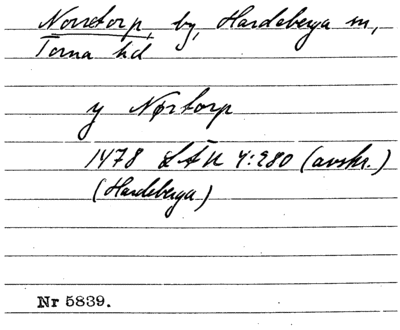 Norretorp, by, Hardeberga sn,
Torna hd
y Nørtorp
1478 LÅU 4:280 (avskr.)
(Hardeberga)
Nr 5839.